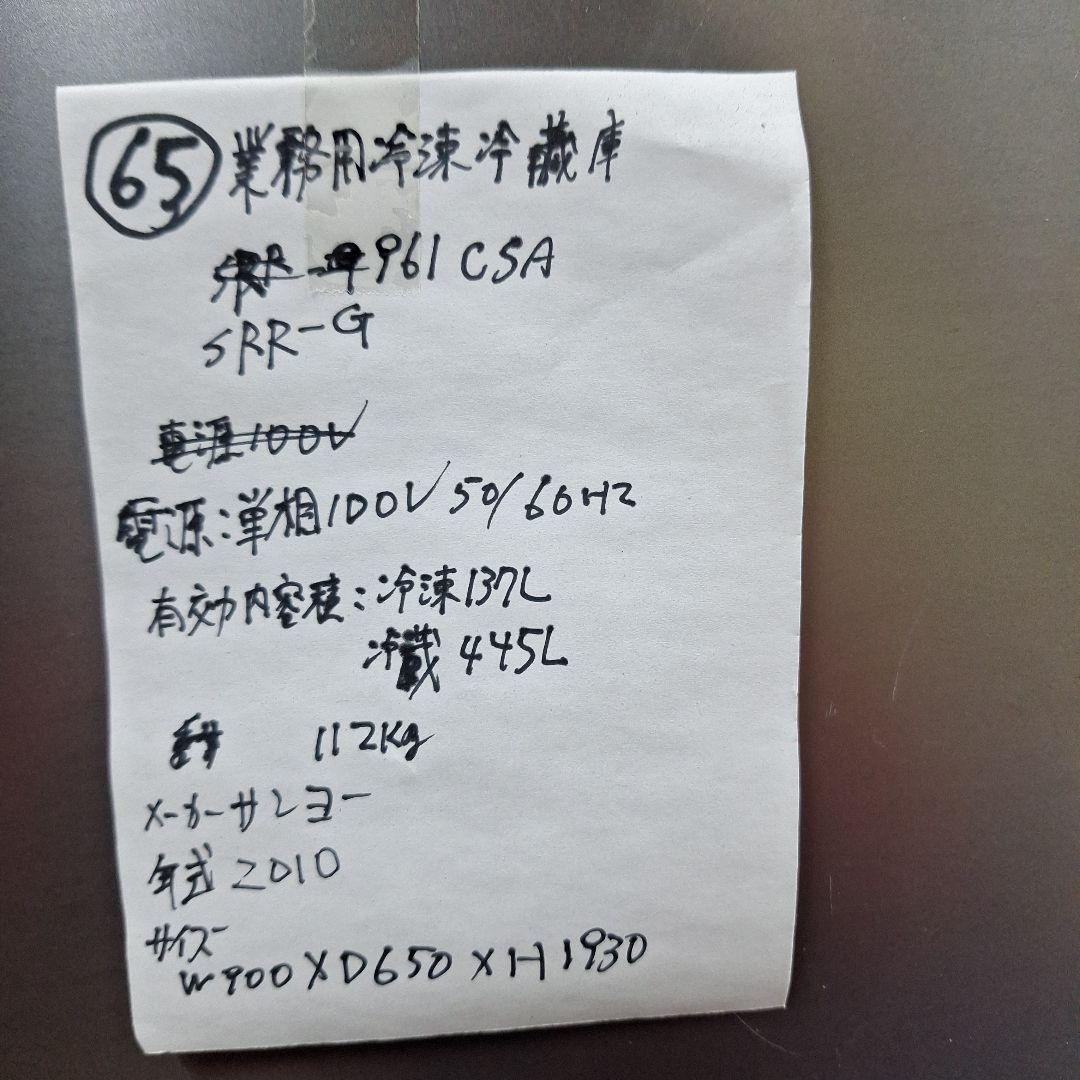 65 業務用冷凍冷蔵庫
961CSA
SRR-G
電源100V
電源:単相100V 50/60Hz
有効内容積:冷凍137L
冷蔵 445L
112Kg
メーカーサンヨー
年式 2010
サイズ
W900×D650×H1930